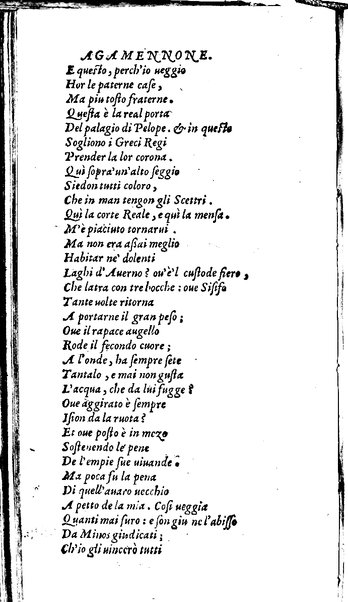 AGAMENNONE.
E questo, perch'io ueggio
Hor le paterne case,
Ma piu tosto fraterne.
Questa è la real porta
Del palagio di Pelope. & in questo
Sogliono i Greci Regi
Prender la lor corona.
Quì sopra un'alto seggio
Siedon tutti coloro,
Che in man tengon gli Scettri.
Quì la corte Reale, e quì la mensa.
M'è piaciuto tornarui.
Ma non era assai meglio
Habitar ne' dolenti
Laghi d'Auerno? ou'è'l custode fiero,
Che latra con tre bocche: oue Sisifo
Tante uolte ritorna
A portarne il gran peso;
Oue il rapace augello
Rode il fecondo cuore;
A l'onde, ha sempre sete
Tantalo, e mai non gusta
L'acqua, che da lui fugge?
Oue aggirato è sempre
Ision da la ruota?
Et oue posto è in mezo
Sostenendo le pene
De l'empie sue uiuande.
Ma poca fu la pena
Di quell'auaro uecchio
A petto de la mia. Così ueggia
Quanti mai furo: e son giu ne l'abisso
Da Minos giudicati;
Ch'io gli uincerò tutti